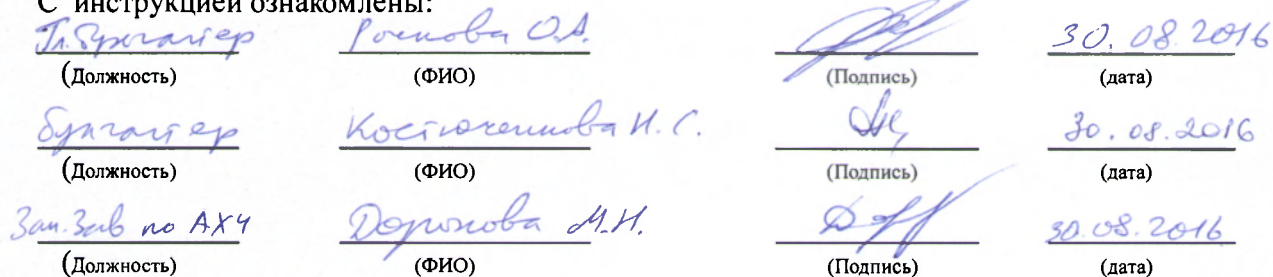 С инструкцией ознакомлены:
Гл. бухгалтер О.А. 30.08.2016
(Должность) (ФИО) (Подпись) (дата)
бухгалтер Костюченкова Н.С. 30.08.2016
(Должность) (ФИО) (Подпись) (дата)
Зам. Зав по АХЧ Доронова М.Н. 30.08.2016
(Должность) (ФИО) (Подпись) (дата)